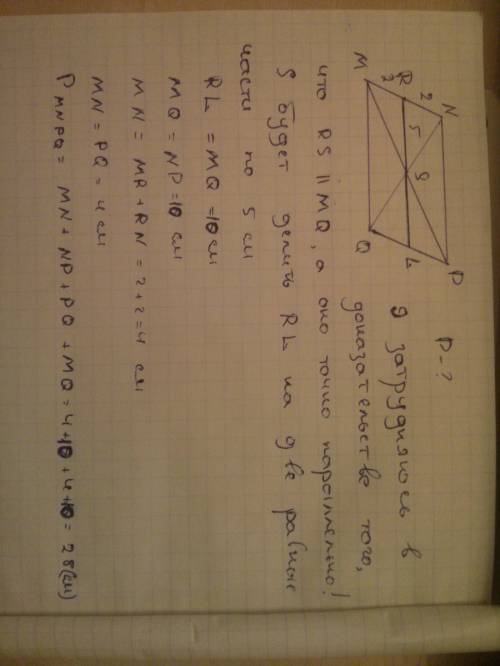 P - ?
Я затрудняюсь в
доказательстве того,
что RS || MQ, а оно точно параллельно!
S будет делить RL на две равные
части по 5 см
RL = MQ = 10 см
MQ = NP = 10 см
MN = MR + RN = 2 + 2 = 4 см
MN = PQ = 4 см
P MNPQ = MN + NP + PQ + MQ = 4 + 10 + 4 + 10 = 28 (см)
N
P
2
R
5
S
L
2
M
Q